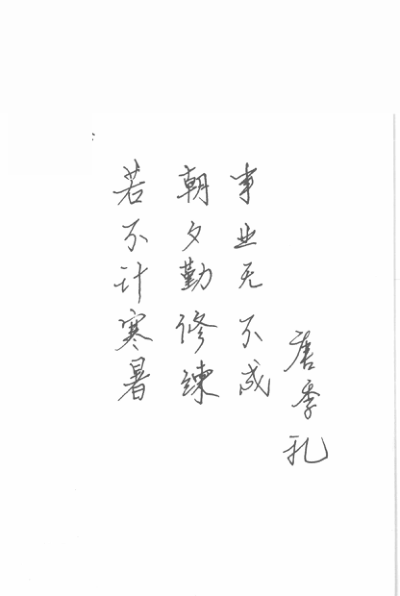 若不计寒暑
朝夕勤修練
事业无不成
唐季礼